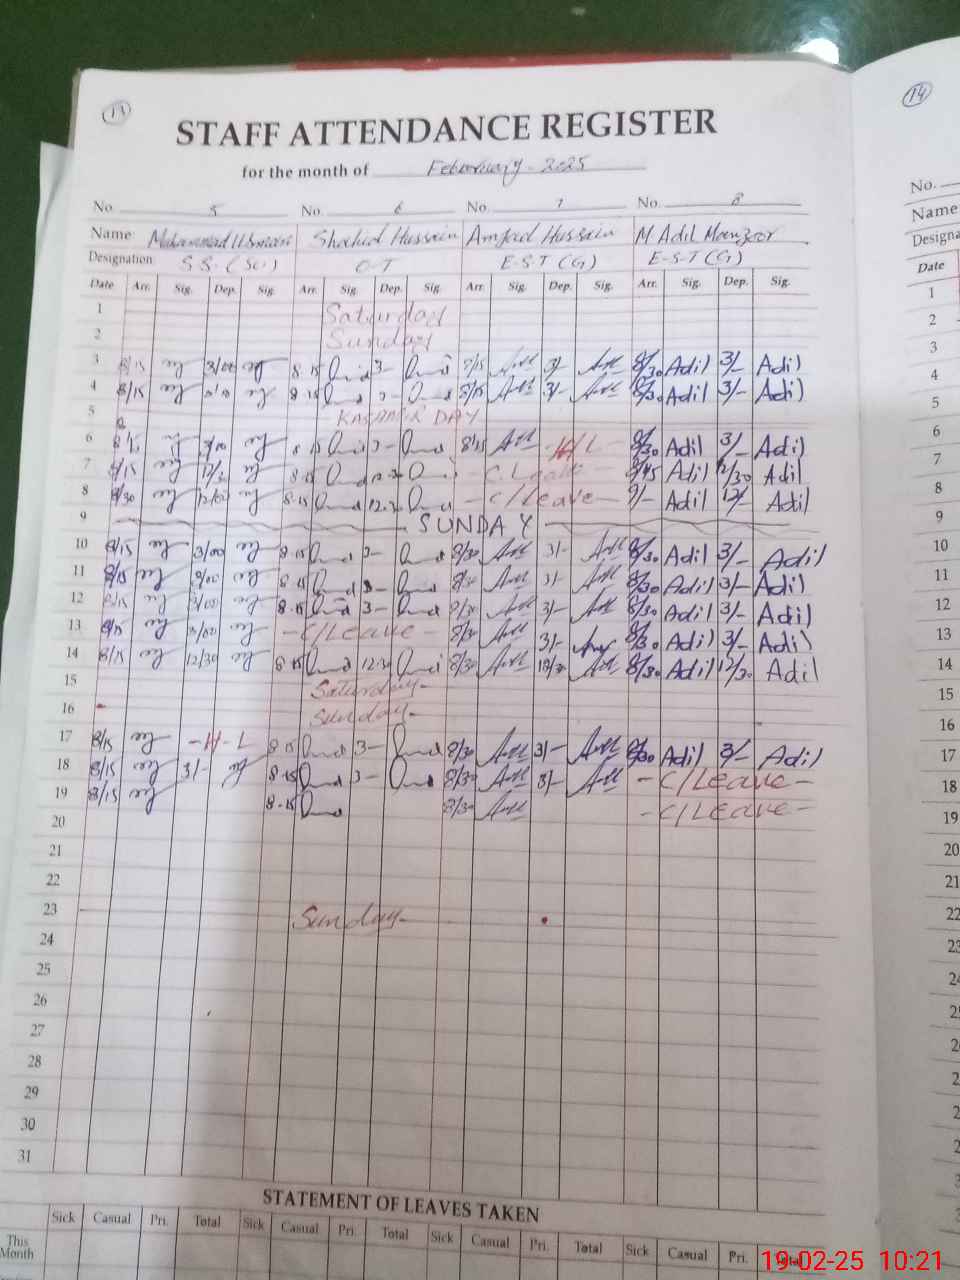 13
14
STAFF ATTENDANCE REGISTER
for the month of February - 2025
No. 5 No. 6 No. 7 No. 8
No.
Name: Muhammad Usman Shahid Hussain Amjad Hussain M Adil Manzoor
Name
Designation: S.S. (Sc) O-T E-S-T (G) E-S-T (G)
Designa
Date Arr. Sig. Dep. Sig. Arr. Sig. Dep. Sig. Arr. Sig. Dep. Sig. Arr. Sig. Dep. Sig.
Date
1 Saturday
2 Sunday
3 8/15 3/00 8-15 3- 8/15 3/- 8/30 Adil 3/- Adil
4 8/15 8-15 8/15 3/- 8/30 Adil 3/- Adil
5 KASHMIR DAY
6 8/15 H/L 8/30 Adil 3/- Adil
7 8/15 8-15 - C. Leave - 8/45 Adil 12/30 Adil
8 8/30 12/00 8-15 12.3 - C/Leave - 9/- Adil 12/- Adil
9 SUNDAY
10 8/15 3/00 8-15 3- 8/30 3/- 8/30 Adil 3/- Adil
11 8/15 3/00 8-15 3- 8/30 3/- 8/30 Adil 3/- Adil
12 8/15 3/00 8-15 3- 8/30 3/- 8/30 Adil 3/- Adil
13 8/15 3/00 - C/Leave - 8/30 3/- 8/30 Adil 3/- Adil
14 8/15 12/30 8-15 12.30 8/30 12/30 8/30 Adil 12/30 Adil
15 Saturday-
16 Sunday-
17 8/15 - H - L 8-15 3- 8/30 3/- 8/30 Adil 3/- Adil
18 8/15 3/- 8-15 3- 8/30 3/- - C/Leave -
19 8/15 8-15 8/30 - C/Leave -
20
21
22
23 Sunday-
24
25
26
27
28
29
30
31
1
2
3
4
5
6
7
8
9
10
11
12
13
14
15
16
17
18
19
20
21
22
23
24
25
26
27
28
STATEMENT OF LEAVES TAKEN
Sick Casual Pri. Total Sick Casual Pri. Total Sick Casual Pri. Total Sick Casual Pri. Total
This Month
19-02-25 10:21